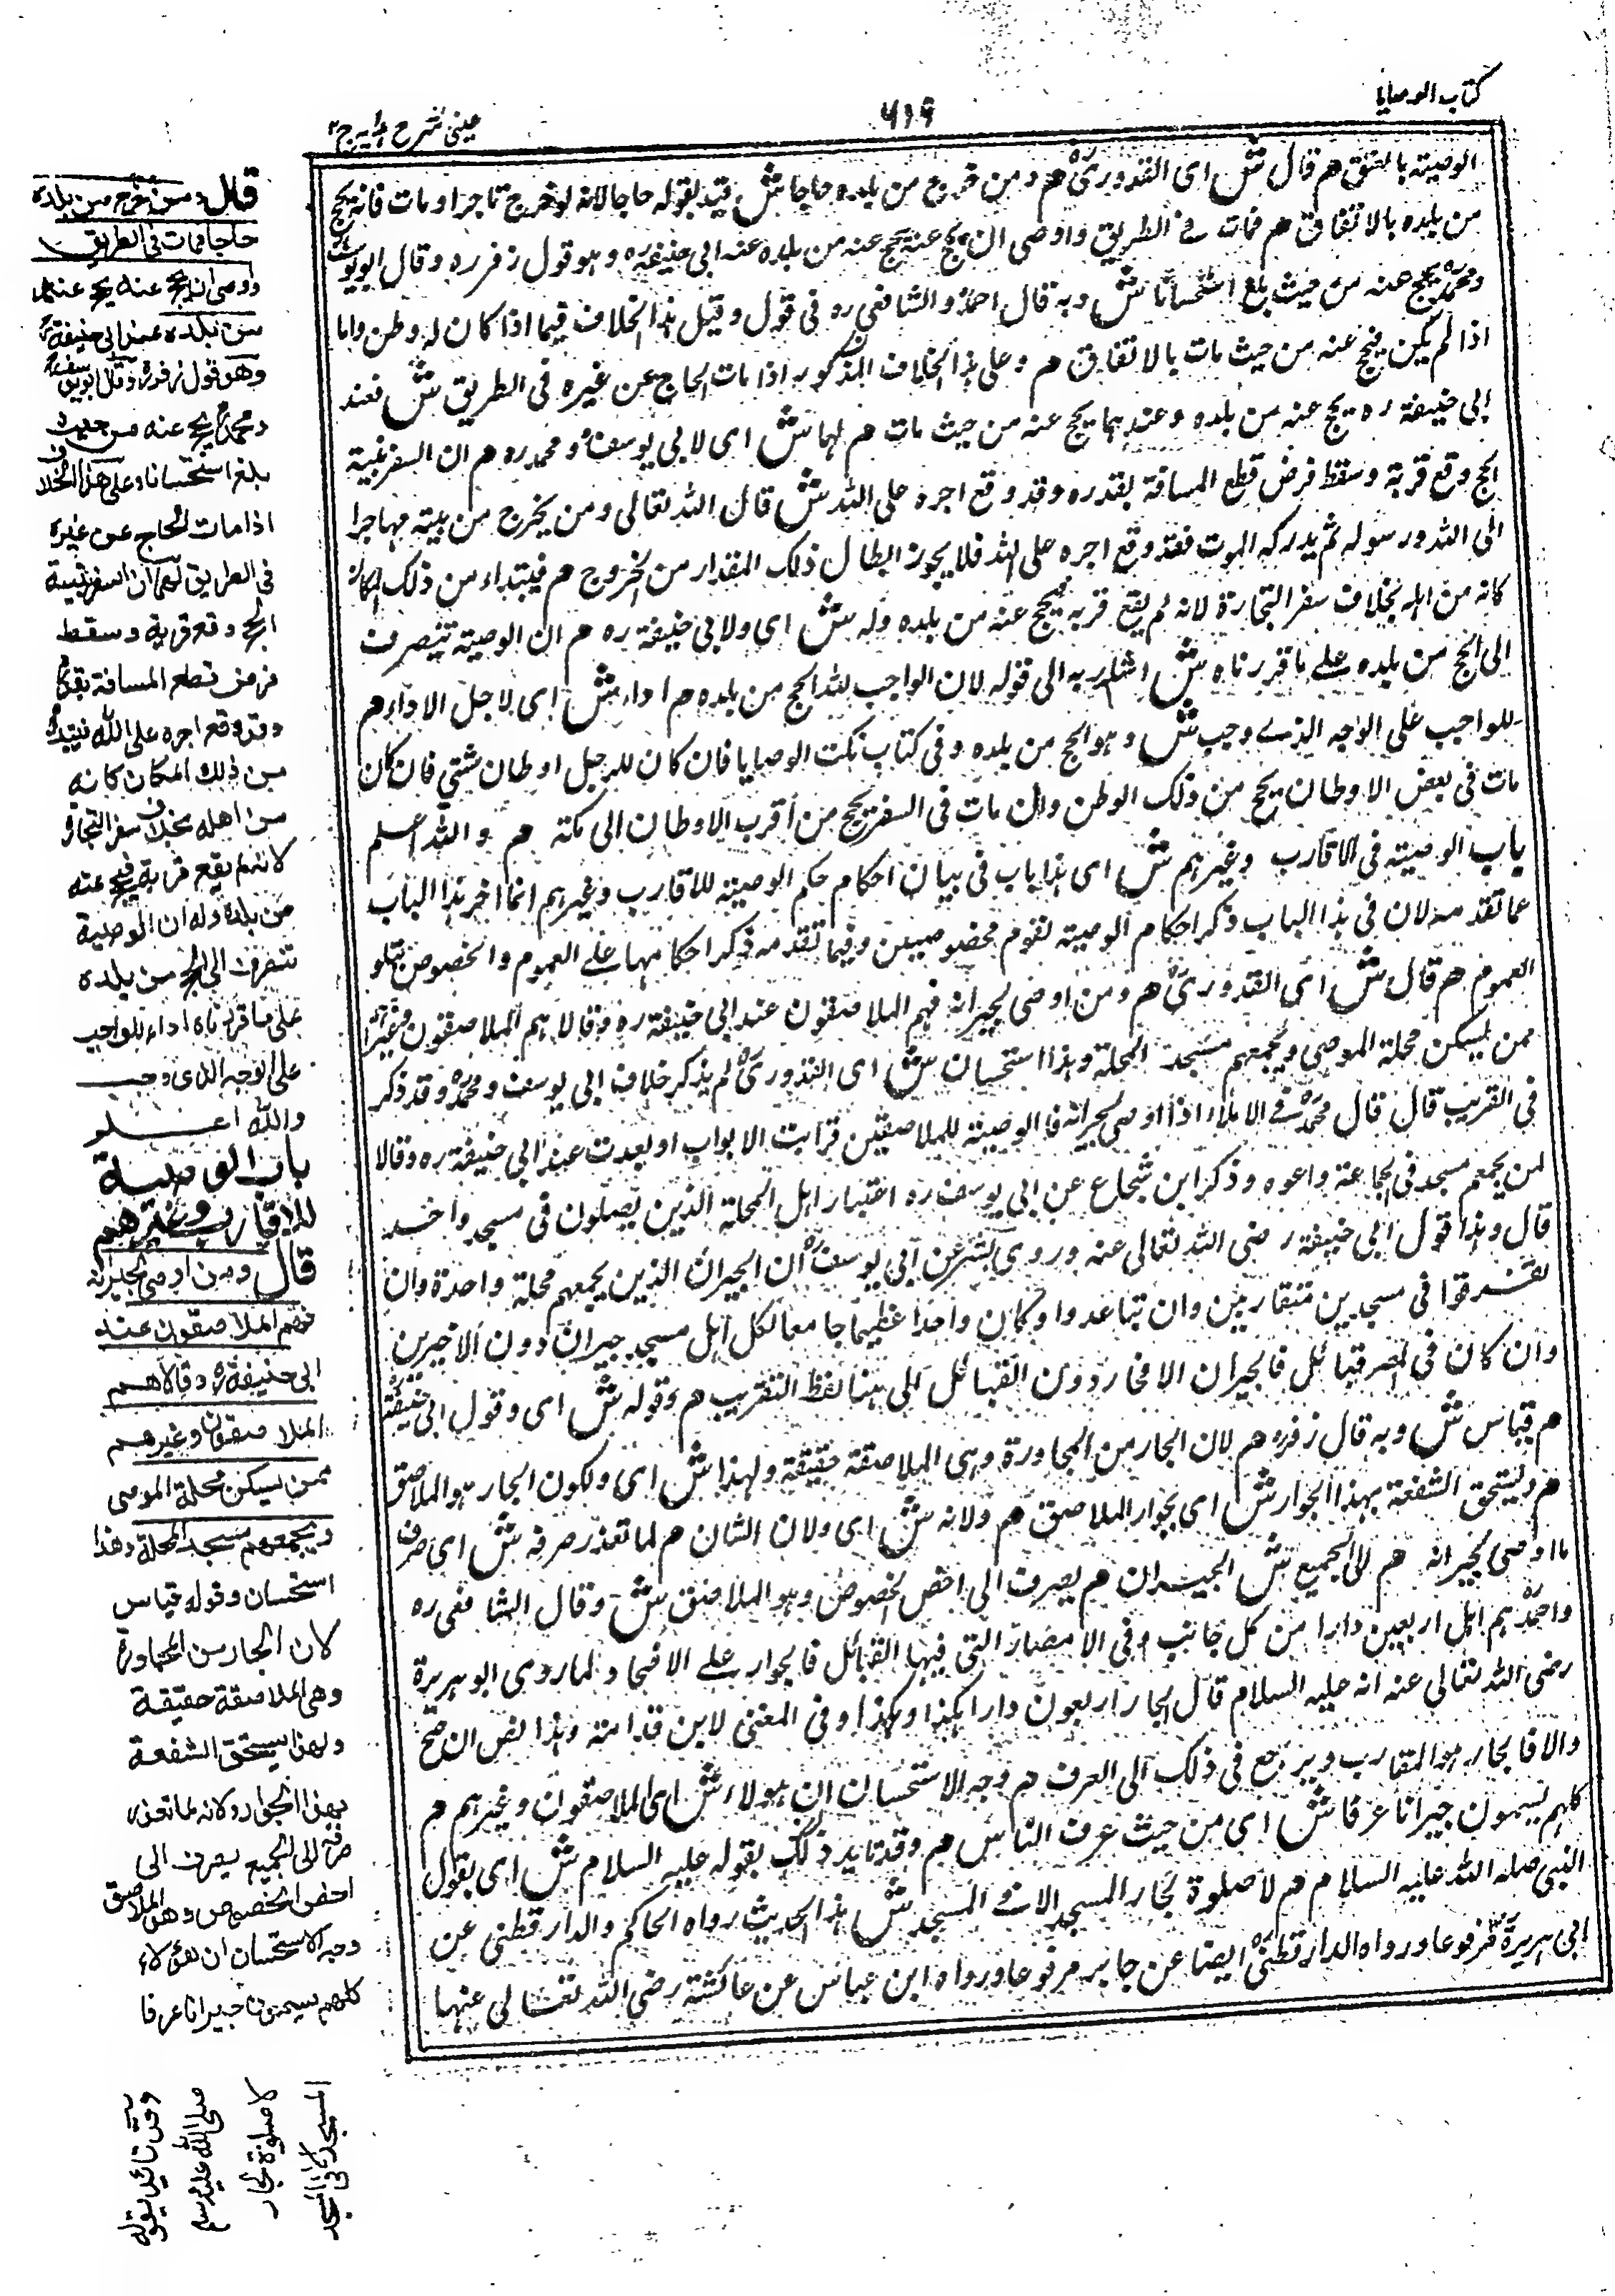 كتاب الوصايا
٦١٩
عينى شرح هدايه ج ٢
الوصية بالعتق هم قال ش اى القدورىؒ هم ومن خرج من بلده حاجا ش قيد بقوله حاجا لانه لو خرج تاجرا ومات فانه يحج
من بلده بالاتفاق هم فمات فى الطريق واوصى ان يحج عنه يحج عنه من بلده عند ابى حنيفة ره وهو قول زفر ره وقال ابو يوسفؒ
ومحمدؒ يحج عنه من حيث بلغ استحسانا ش وبه قال احمدؒ والشافعى ره فى قول وقيل هذا الخلاف فيما اذا كان له وطن واما
اذا لم يكن فيحج عنه من حيث مات بالاتفاق هم وعلى هذا الخلاف المذكور اذا مات الحاج عن غيره فى الطريق ش فعند
ابى حنيفة ره يحج عنه من بلده وعندهما يحج عنه من حيث مات هم لهما ش اى لابى يوسفؒ ومحمد ره هم ان السفر بنية
الحج وقع قربة وسقط فرض قطع المسافة بقدره وقد وقع اجره على الله ش قال الله تعالى ومن يخرج من بيته مهاجرا
الى الله ورسوله ثم يدركه الموت فقد وقع اجره على الله فلا يجوز ابطال ذلك المقدار من الخروج هم فيبتداء من ذلك المكان
كانه من اهله بخلاف سفر التجارة لانه لم يقع قربة فيحج عنه من بلده وله ش اى ولابى حنيفة ره هم ان الوصية تنصرف
الى الحج من بلده على ما قررناه ش اشار به الى قوله لان الواجب لله الحج من بلده هم اداء ش اى لاجل الاداء هم
للواجب على الوجه الذى وجب ش وهو الحج من بلده وفى كتاب نكت الوصايا فان كان للرجل اوطان شتى فان كان
مات فى بعض الاوطان يحج من ذلك الوطن وان مات فى السفر يحج من اقرب الاوطان الى مكة هم والله اعلم
باب الوصية فى الاقارب وغيرهم ش اى هذا باب فى بيان احكام حكم الوصية للاقارب وغيرهم انما اخر هذا الباب
عما تقدمه لان فى هذا الباب ذكر احكام الوصية لقوم مخصوصين وفيما تقدمه ذكر احكامها على العموم والخصوص يتلو
العموم هم قال ش اى القدورىؒ هم ومن اوصى لجيرانه فهم الملاصقون عند ابى حنيفة ره وقالا هم الملاصقون وغيرهم
ممن يسكن محلة الموصى ويجمعهم مسجد المحلة وهذا استحسان ش اى القدورىؒ لم يذكر خلاف ابى يوسف ومحمدؒ وقد ذكر
فى التقريب قال قال محمدؒ فى الاملاء اذا اوصى لجيرانه فالوصية للملاصقين قرابت الابواب او بعدت عند ابى حنيفة ره وقالا
لمن يجمعهم مسجد فى الجماعة واعوه وذكر ابن شجاع عن ابى يوسف ره اعتبار اهل المحلة الذين يصلون فى مسجد واحد
قال وهذا قول ابى حنيفة رضى الله تعالى عنه وروى بشر عن ابى يوسفؒ ان الجيران الذين يجمعهم محلة واحدة وان
تفرقوا فى مسجدين متقاربين وان تباعدوا وكان واحدا عظيما جامعا لكل اهل مسجد جيران دون الآخرين
وان كان فى المصر قبائل فالجيران الافخاذ دون القبائل الى هنا لفظ التقريب هم وقوله ش اى وقول ابى حنيفةؒ
هم قياس ش وبه قال زفر ره هم لان الجار من المجاورة وهى الملاصقة حقيقة ولهذا ش اى ولكون الجار هو الملاصق
هم يستحق الشفعة بهذا الجوار ش اى بجوار الملاصق هم ولانه ش اى ولان الشان هم لما تعذر صرفه ش اى صرف
ما اوصى لجيرانه هم الى الجميع ش الجيران هم يصرف الى اخص الخصوص وهو الملاصق ش وقال الشافعى ره
واحمدؒ هم اهل اربعين دارا من كل جانب وفى الامصار التى فيها القبائل فالجوار على الافخاذ لما روى ابو هريرة
رضى الله تعالى عنه انه عليه السلام قال الجار اربعون دارا هكذا وهكذا وفى المغنى لابن قدامة وهذا نص ان صح
والا فالجار هو المقارب ويرجع فى ذلك الى العرف هم وجه الاستحسان ان هولاء ش اى الملاصقون وغيرهم هم
كلهم يسمون جيرانا عرفا ش اى من حيث عرف الناس هم وقد تايد ذلك بقوله عليه السلام ش اى بقول
النبى صلى الله عليه السلام هم لا صلوة لجار المسجد الا فى المسجد ش هذا الحديث رواه الحاكم والدارقطنى عن
ابى هريرةؓ مرفوعا ورواه الدارقطنىؒ ايضا عن جابر مرفوعا ورواه ابن عباس عن عائشة رضى الله تعالى عنها
قال ومن خرج من بلده
حاجا فمات فى الطريق
واوصى ان يحج عنه يحج عنه
من بلده عند ابى حنيفةؒ
وهو قول زفرؒ وقال ابو يوسفؒ
ومحمدؒ يحج عنه من حيث
بلغ استحسانا وعلى هذا الخلاف
اذا مات الحاج عن غيره
فى الطريق لهما ان السفر بنية
الحج وقع قربة وسقط
فرض قطع المسافة بقدره
وقد وقع اجره على الله فيبتدأ
من ذلك المكان كانه
من اهله بخلاف سفر التجارة
لانه لم يقع قربة فيحج عنه
من بلده وله ان الوصية
تنصرف الى الحج من بلده
على ما قررناه اداء للواجب
على الوجه الذى وجب
والله اعلم
باب الوصية
للاقارب وغيرهم
قال ومن اوصى لجيرانه
فهم الملاصقون عند
ابى حنيفةؒ وقالا هم
الملاصقون وغيرهم
ممن يسكن محلة الموصى
ويجمعهم مسجد المحلة وهذا
استحسان وقوله قياس
لان الجار من المجاورة
وهى الملاصقة حقيقة
ولهذا يستحق الشفعة
بهذا الجوار ولانه لما تعذر
صرفه الى الجميع يصرف الى
اخص الخصوص وهو الملاصق
وجه الاستحسان ان هؤلاء
كلهم يسمون جيرانا عرفا
وقد تأيد بقوله
صلى الله عليه وسلم
لا صلوة لجار
المسجد الا فى المسجد